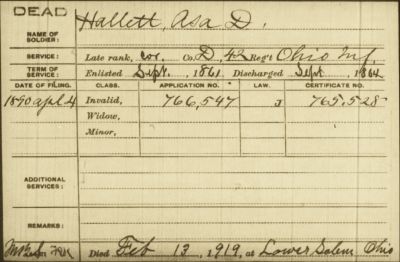 DEAD
Hallett, Asa D.
NAME OF SOLDIER:
SERVICE: Late rank, Cor. Co. D, 42 Reg't Ohio Inf.
TERM OF SERVICE: Enlisted Sept. , 1861 Discharged Sept , 1864
DATE OF FILING. CLASS. APPLICATION NO. LAW. CERTIFICATE NO.
1890 Apl 4 Invalid, 766,547 J 765,528
Widow,
Minor,
ADDITIONAL SERVICES:
REMARKS:
Died Feb 13, 1919, at Lower Salem Ohio